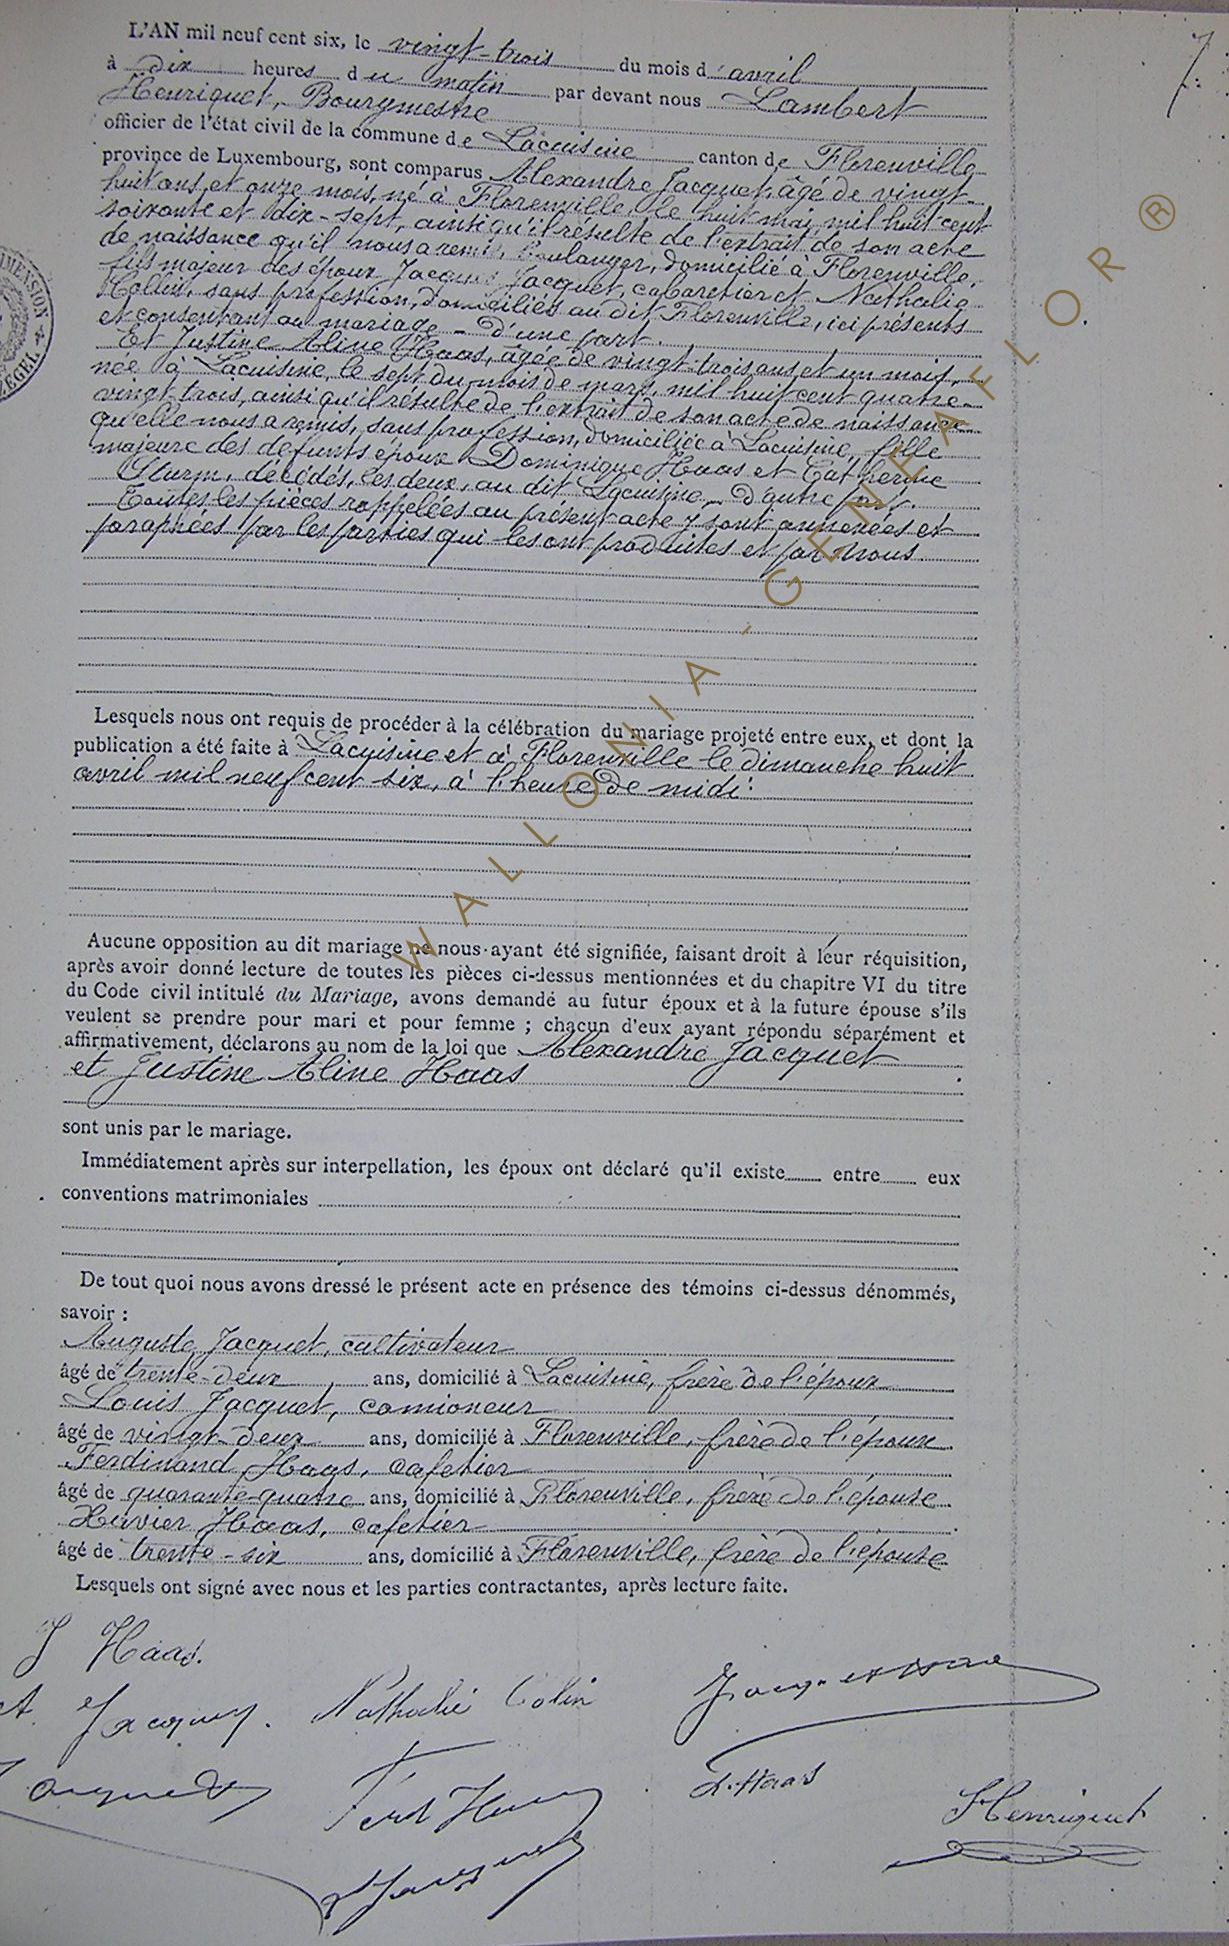 7.
L'AN mil neuf cent six, le vingt-trois du mois d'avril
à dix heures du matin par devant nous Lambert
Henriquet, Bourgmestre
officier de l'état civil de la commune de Lacuisine canton de Florenville
province de Luxembourg, sont comparus Alexandre Jacquet, âgé de vingt-
huit ans et onze mois, né à Florenville, le huit mai mil huit cent
soixante et dix-sept, ainsi qu'il résulte de l'extrait de son acte
de naissance qu'il nous a remis, boulanger, domicilié à Florenville,
fils majeur des époux Jacques Jacquet, cabaretier et Nathalie
Collin, sans profession, domiciliés au dit Florenville, ici présents
et consentant au mariage - d'une part.
Et Justine Aline Haas, âgée de vingt-trois ans et un mois,
née à Lacuisine, le sept du mois de mars, mil huit cent quatre-
vingt trois, ainsi qu'il résulte de l'extrait de son acte de naissance
qu'elle nous a remis, sans profession, domiciliée à Lacuisine, fille
majeure des défunts époux Dominique Haas et Catherine
Sturm, décédés, les deux, au dit Lacuisine, - d'autre part.
Toutes les pièces rappelées au présent acte y sont annexées et
paraphées par les parties qui les ont produites et par nous
Lesquels nous ont requis de procéder à la célébration du mariage projeté entre eux, et dont la
publication a été faite à Lacuisine et à Florenville le dimanche huit
avril mil neuf cent six, à l'heure de midi.
Aucune opposition au dit mariage ne nous ayant été signifiée, faisant droit à leur réquisition,
après avoir donné lecture de toutes les pièces ci-dessus mentionnées et du chapitre VI du titre
du Code civil intitulé du Mariage, avons demandé au futur époux et à la future épouse s'ils
veulent se prendre pour mari et pour femme ; chacun d'eux ayant répondu séparément et
affirmativement, déclarons au nom de la loi que Alexandre Jacquet
et Justine Aline Haas
sont unis par le mariage.
Immédiatement après sur interpellation, les époux ont déclaré qu'il existe entre eux
conventions matrimoniales
De tout quoi nous avons dressé le présent acte en présence des témoins ci-dessus dénommés,
savoir :
Auguste Jacquet, cultivateur
âgé de trente-deux ans, domicilié à Lacuisine, frère de l'époux
Louis Jacquet, camioneur
âgé de vingt-deux ans, domicilié à Florenville, frère de l'époux
Ferdinand Haas, cafetier
âgé de quarante-quatre ans, domicilié à Florenville, frère de l'épouse
Xavier Haas, cafetier
âgé de trente-six ans, domicilié à Florenville, frère de l'épouse
Lesquels ont signé avec nous et les parties contractantes, après lecture faite.
J Haas.
A. Jacquet. Nathalie Colin
Jacquet Ferd Haas X. Haas LHenriquet
Jacquet
WALLONIA - GENEAFLOR ®